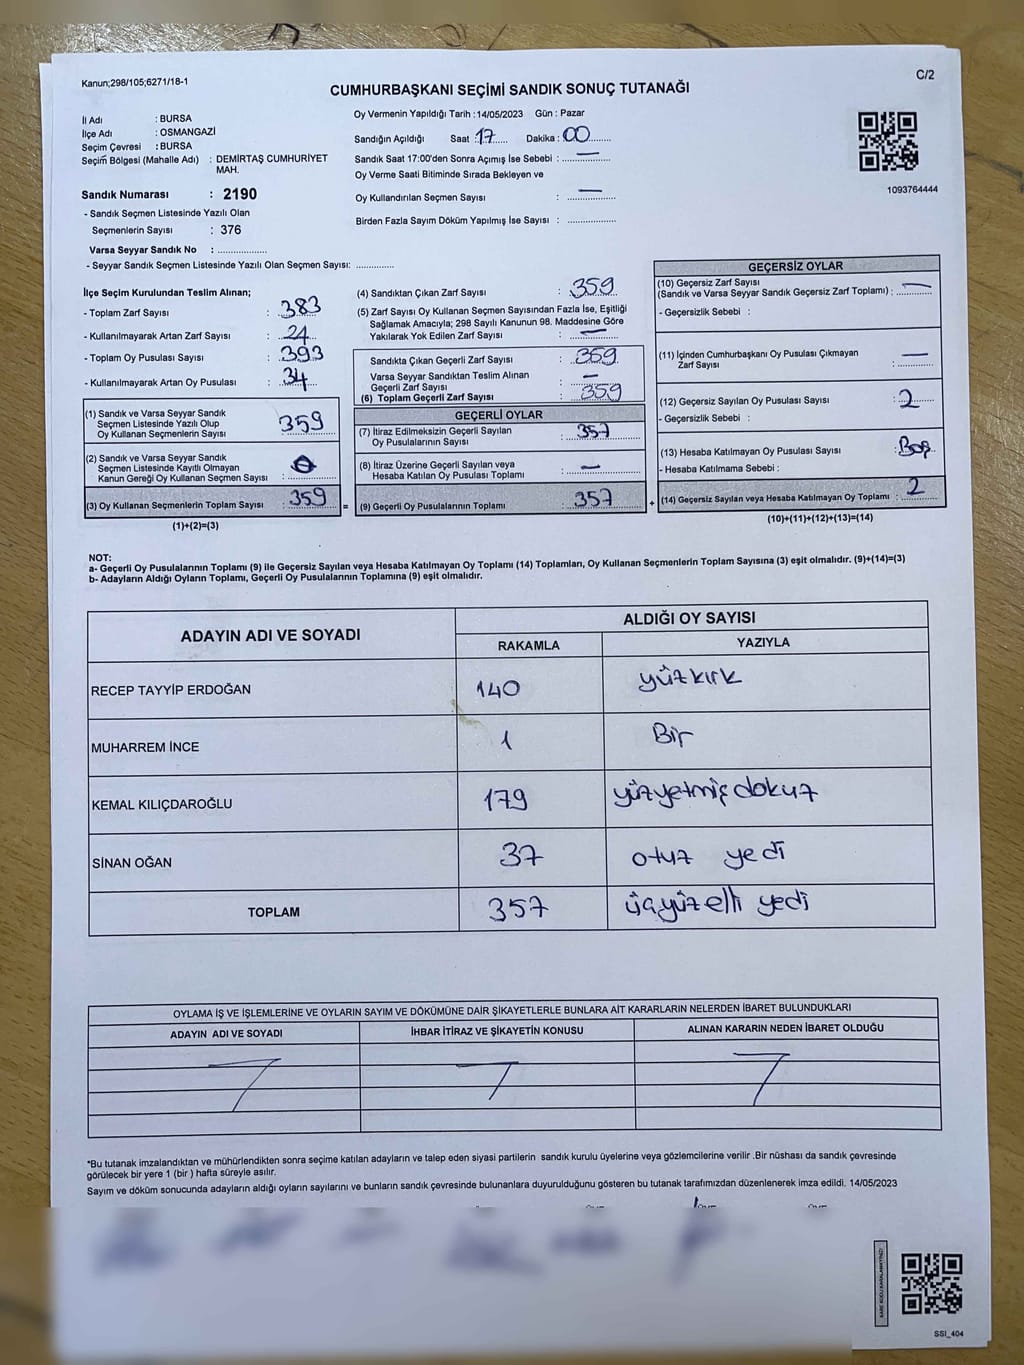 Kanun;298/105;6271/18-1
C/2
CUMHURBAŞKANI SEÇİMİ SANDIK SONUÇ TUTANAĞI
İl Adı : BURSA
İlçe Adı : OSMANGAZİ
Seçim Çevresi : BURSA
Seçim Bölgesi (Mahalle Adı) : DEMİRTAŞ CUMHURİYET
MAH.
Sandık Numarası : 2190
- Sandık Seçmen Listesinde Yazılı Olan
Seçmenlerin Sayısı : 376
Varsa Seyyar Sandık No : ..................
- Seyyar Sandık Seçmen Listesinde Yazılı Olan Seçmen Sayısı: ..............
Oy Vermenin Yapıldığı Tarih : 14/05/2023 Gün : Pazar
Sandığın Açıldığı Saat : 17 Dakika : 00
Sandık Saat 17:00'den Sonra Açımış İse Sebebi : —
Oy Verme Saati Bitiminde Sırada Bekleyen ve
Oy Kullandırılan Seçmen Sayısı : —
Birden Fazla Sayım Döküm Yapılmış İse Sayısı : ..................
1093764444
İlçe Seçim Kurulundan Teslim Alınan;
- Toplam Zarf Sayısı : 383
- Kullanılmayarak Artan Zarf Sayısı : 24
- Toplam Oy Pusulası Sayısı : 393
- Kullanılmayarak Artan Oy Pusulası : 34
(1) Sandık ve Varsa Seyyar Sandık
Seçmen Listesinde Yazılı Olup
Oy Kullanan Seçmenlerin Sayısı : 359
(2) Sandık ve Varsa Seyyar Sandık
Seçmen Listesinde Kayıtlı Olmayan
Kanun Gereği Oy Kullanan Seçmen Sayısı : 0
(3) Oy Kullanan Seçmenlerin Toplam Sayısı : 359 =
(1)+(2)=(3)
(4) Sandıktan Çıkan Zarf Sayısı : 359
(5) Zarf Sayısı Oy Kullanan Seçmen Sayısından Fazla İse, Eşitliği
Sağlamak Amacıyla; 298 Sayılı Kanunun 98. Maddesine Göre
Yakılarak Yok Edilen Zarf Sayısı : —
Sandıkta Çıkan Geçerli Zarf Sayısı : 359
Varsa Seyyar Sandıktan Teslim Alınan
Geçerli Zarf Sayısı : —
(6) Toplam Geçerli Zarf Sayısı : 359
GEÇERLİ OYLAR
(7) İtiraz Edilmeksizin Geçerli Sayılan
Oy Pusulalarının Sayısı : 357
(8) İtiraz Üzerine Geçerli Sayılan veya
Hesaba Katılan Oy Pusulası Toplamı : —
(9) Geçerli Oy Pusulalarının Toplamı : 357 +
GEÇERSİZ OYLAR
(10) Geçersiz Zarf Sayısı
(Sandık ve Varsa Seyyar Sandık Geçersiz Zarf Toplamı) : —
- Geçersizlik Sebebi :
(11) İçinden Cumhurbaşkanı Oy Pusulası Çıkmayan
Zarf Sayısı : —
(12) Geçersiz Sayılan Oy Pusulası Sayısı : 2
- Geçersizlik Sebebi :
(13) Hesaba Katılmayan Oy Pusulası Sayısı : Boş
- Hesaba Katılmama Sebebi :
(14) Geçersiz Sayılan veya Hesaba Katılmayan Oy Toplamı : 2
(10)+(11)+(12)+(13)=(14)
NOT:
a- Geçerli Oy Pusulalarının Toplamı (9) ile Geçersiz Sayılan veya Hesaba Katılmayan Oy Toplamı (14) Toplamları, Oy Kullanan Seçmenlerin Toplam Sayısına (3) eşit olmalıdır. (9)+(14)=(3)
b- Adayların Aldığı Oyların Toplamı, Geçerli Oy Pusulalarının Toplamına (9) eşit olmalıdır.
ADAYIN ADI VE SOYADI
ALDIĞI OY SAYISI
RAKAMLA YAZIYLA
RECEP TAYYİP ERDOĞAN 140 yüzkırk
MUHARREM İNCE 1 Bir
KEMAL KILIÇDAROĞLU 179 yüzyetmiş dokuz
SİNAN OĞAN 37 otuz yedi
TOPLAM 357 üçyüzelli yedi
OYLAMA İŞ VE İŞLEMLERİNE VE OYLARIN SAYIM VE DÖKÜMÜNE DAİR ŞİKAYETLERLE BUNLARA AİT KARARLARIN NELERDEN İBARET BULUNDUKLARI
ADAYIN ADI VE SOYADI İHBAR İTİRAZ VE ŞİKAYETİN KONUSU ALINAN KARARIN NEDEN İBARET OLDUĞU
*Bu tutanak imzalandıktan ve mühürlendikten sonra seçime katılan adayların ve talep eden siyasi partilerin sandık kurulu üyelerine veya gözlemcilerine verilir .Bir nüshası da sandık çevresinde
görülecek bir yere 1 (bir ) hafta süreyle asılır.
Sayım ve döküm sonucunda adayların aldığı oyların sayılarını ve bunların sandık çevresinde bulunanlara duyurulduğunu gösteren bu tutanak tarafımızdan düzenlenerek imza edildi. 14/05/2023
SSI_404